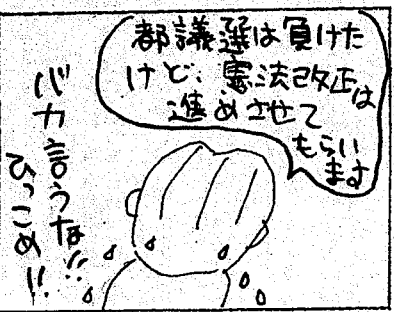 都議選は負けた
けど、憲法改正は
進めさせて
もらい
ます
バカ言うな!!
ひっこめ!!